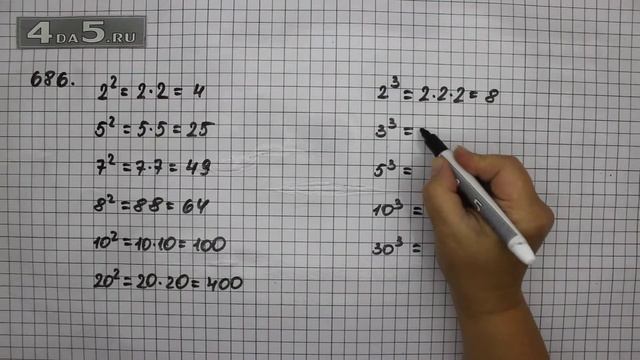 4DA5.RU
686.
2² = 2·2 = 4
5² = 5·5 = 25
7² = 7·7 = 49
8² = 88 = 64
10² = 10·10 = 100
20² = 20·20 = 400
2³ = 2·2·2 = 8
3³ =
5³ =
10³ =
30³ =